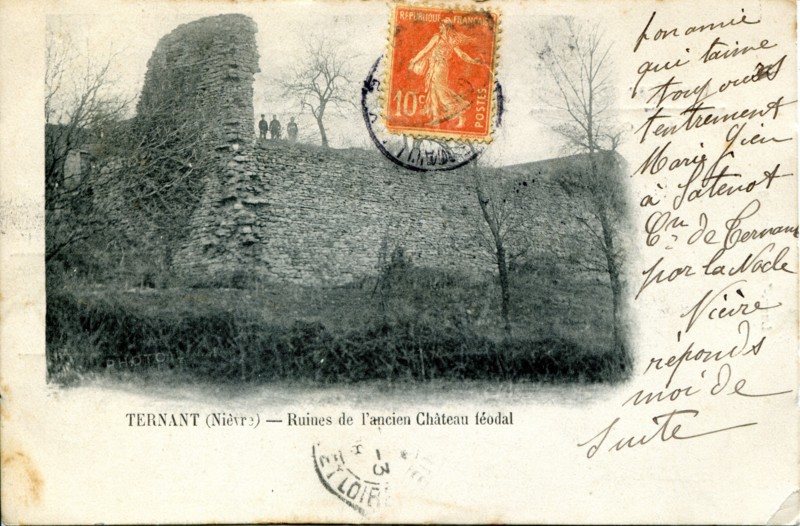 REPUBLIQUE FRANÇAISE
10c
POSTES
PHOTO
TERNANT (Nièvre) — Ruines de l'ancien Château féodal
ET LOIR
-3
ton amie
qui t'aime
toujours
tentrement
Marie
à
Cne de Ternant
par la Nocle
Nièvre
réponds
moi de
suite